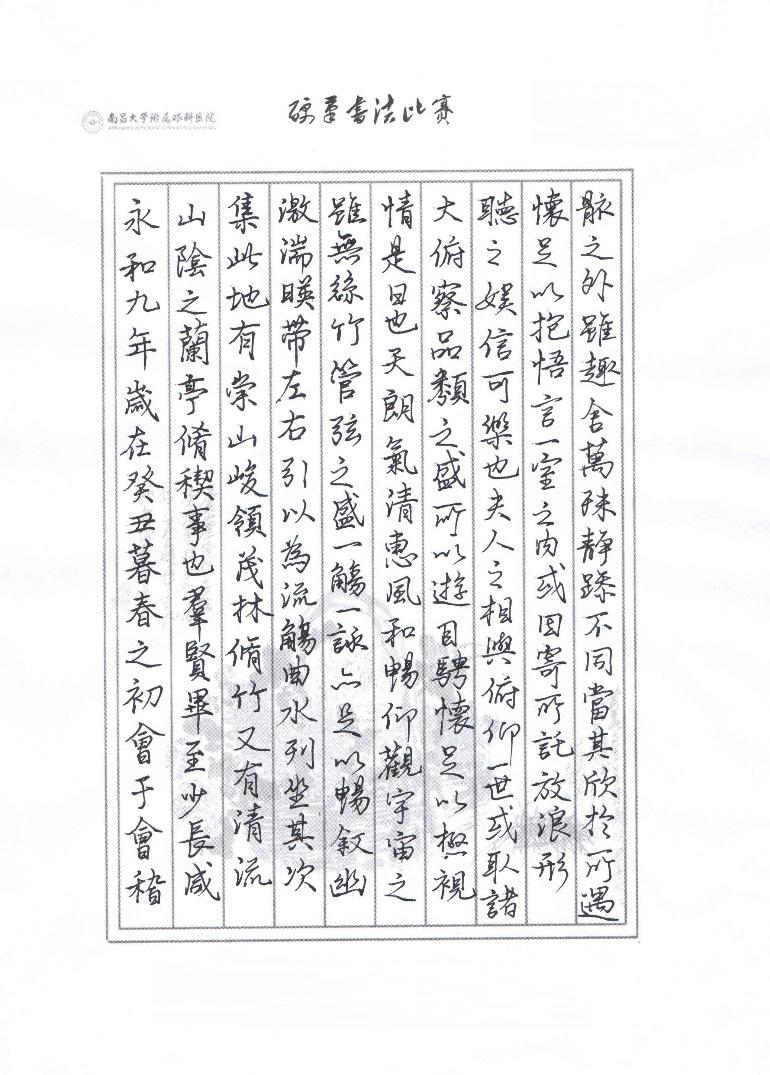 南昌大学附属眼科医院
硬筆書法比赛
永和九年歲在癸丑暮春之初會于會稽
山陰之蘭亭脩稧事也羣賢畢至少長咸
集此地有崇山峻領茂林脩竹又有清流
激湍暎帶左右引以為流觴曲水列坐其次
雖無絲竹管弦之盛一觴一詠亦足以暢敘幽
情是日也天朗氣清惠風和暢仰觀宇宙之
大俯察品類之盛所以遊目騁懷足以極視
聽之娛信可樂也夫人之相與俯仰一世或取諸
懷足以抱悟言一室之內或因寄所託放浪形
骸之外雖趣舍萬殊靜躁不同當其欣於所遇